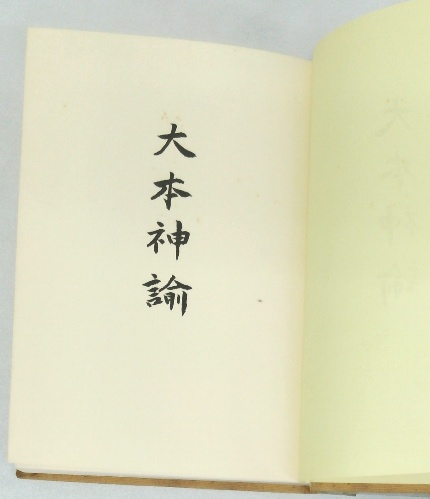 大本神諭